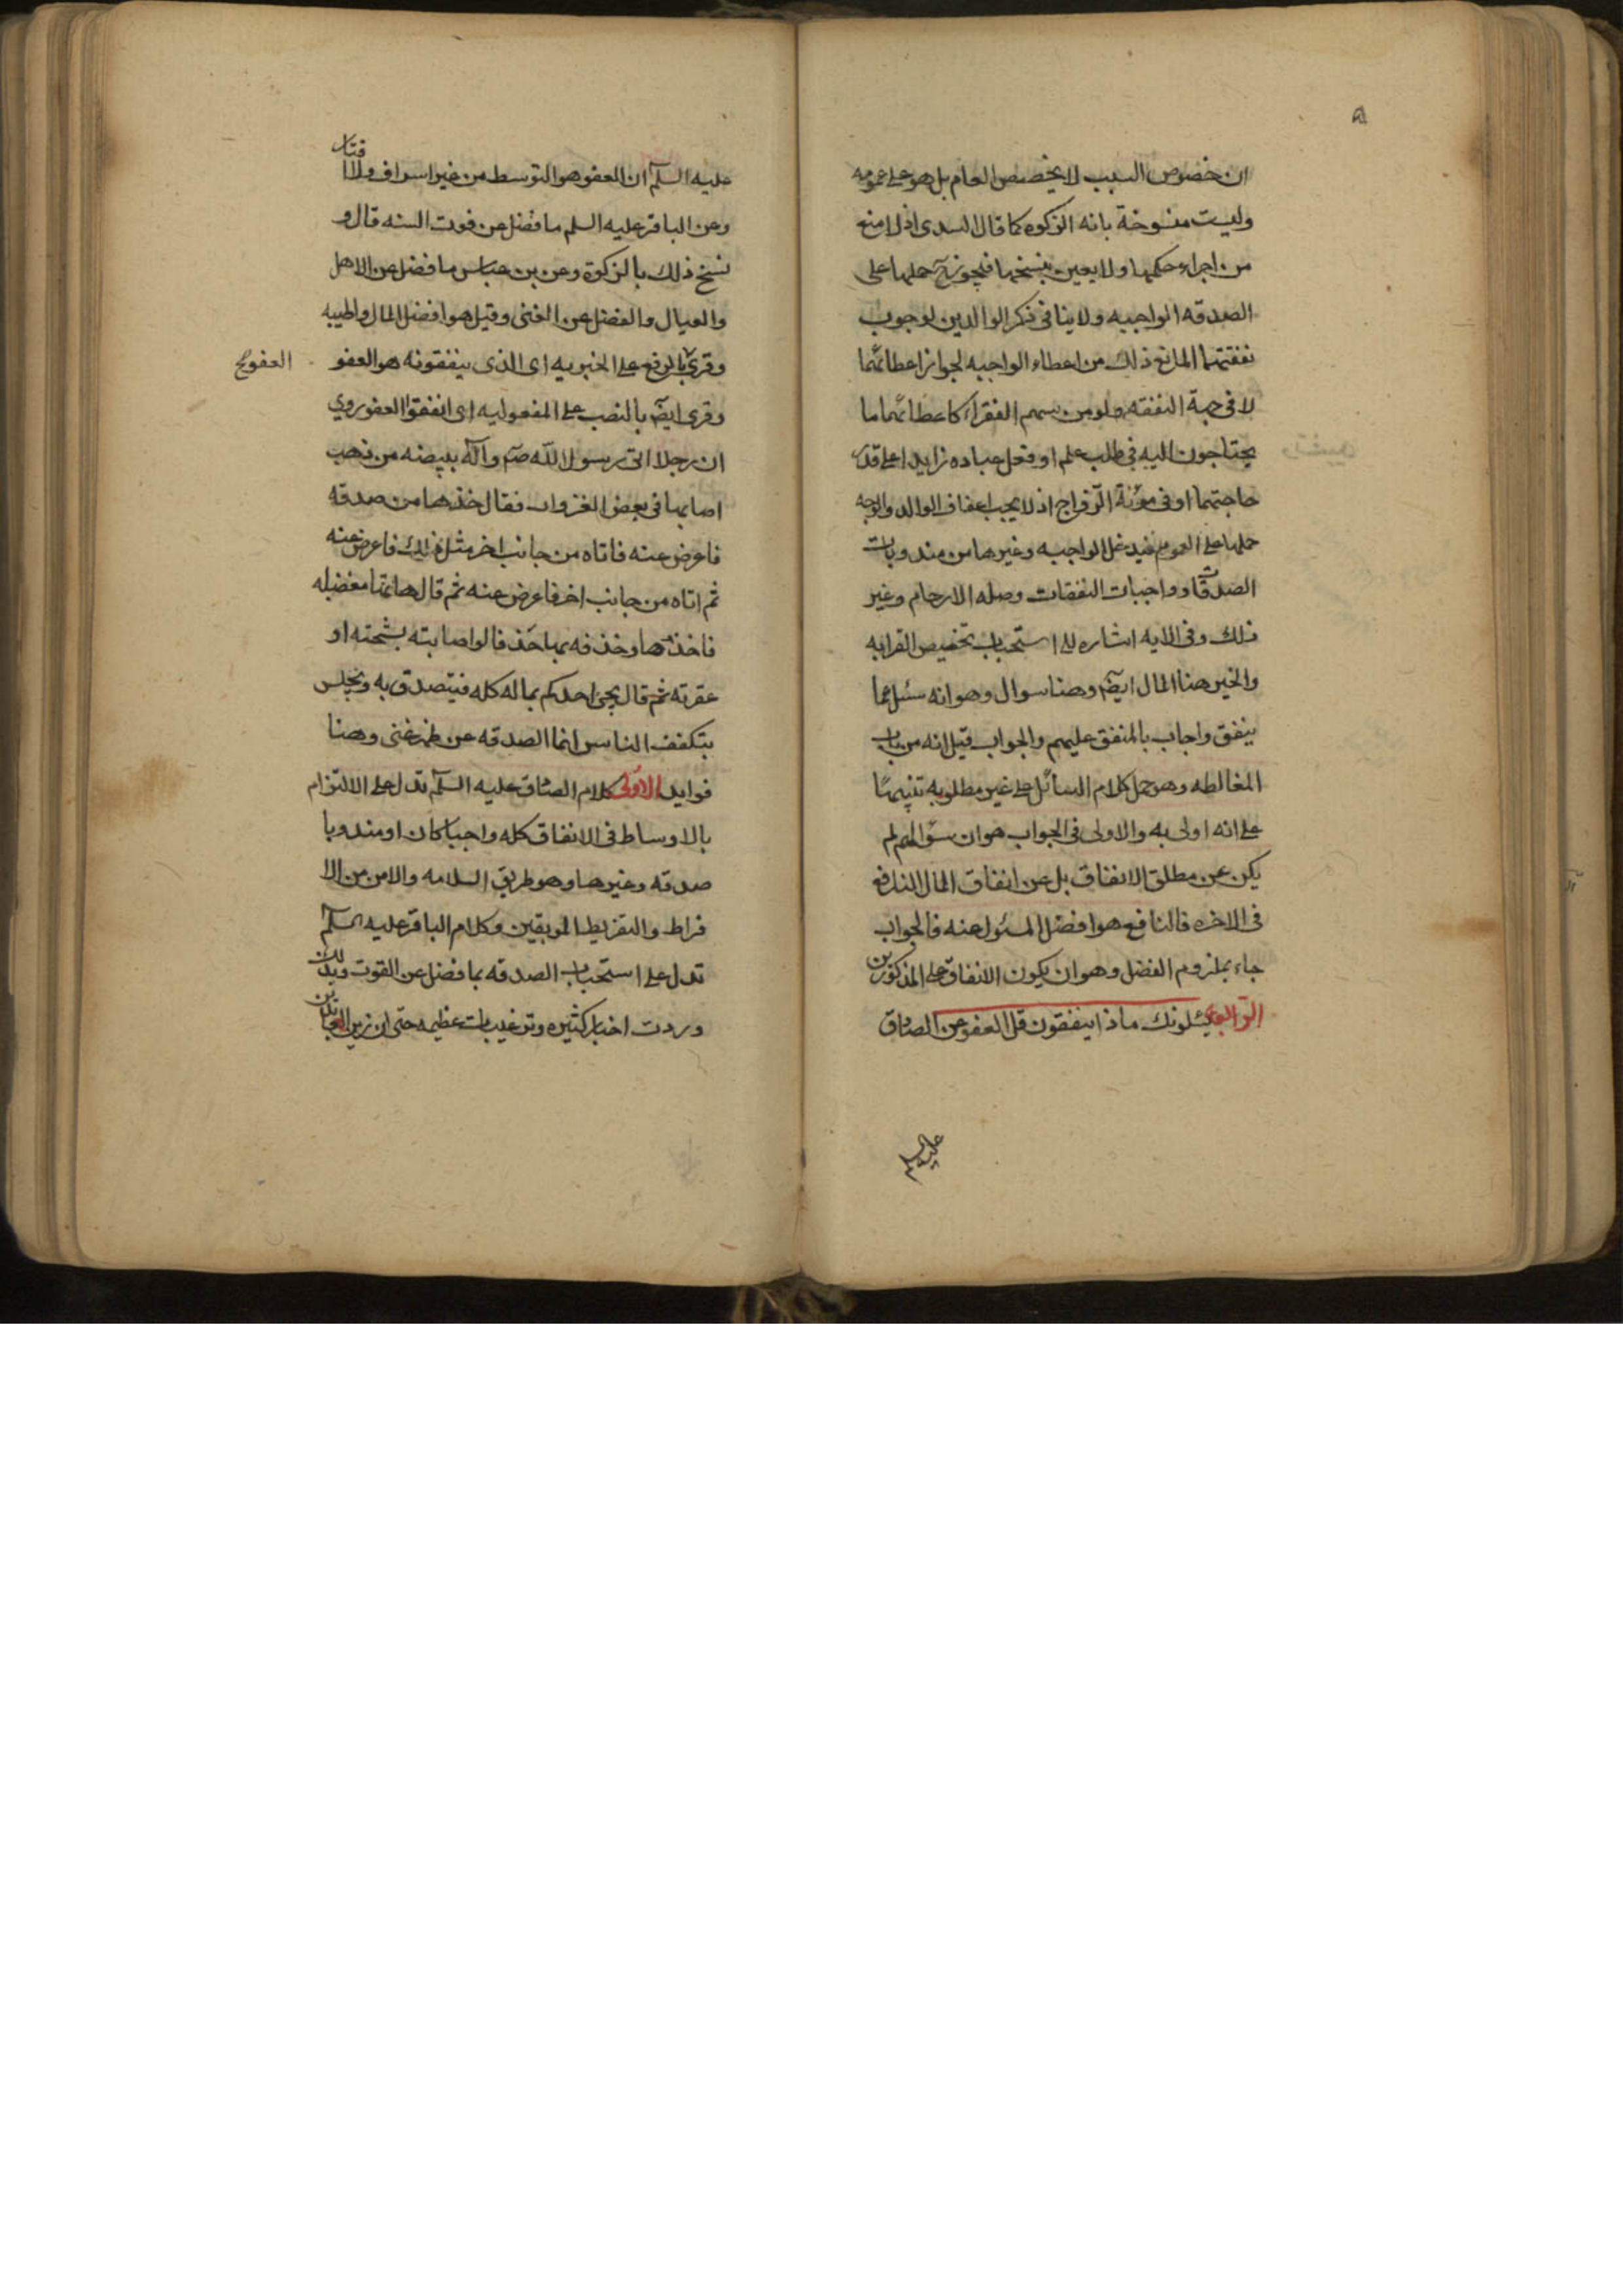 ان خصوص السبب لا يخصص العام بل هو على عمومه
وليست منسوخة بانه الزكوه كما قال السدى اذ لا منع
من اجراء حكمها ولا يعين بنسخها فيجوز حملها على
الصدقه الواجبه ولا ينافى ذكر الوالدين لوجوب
نفقتهما المانع ذلك من اعطاء الواجبه لجواز اعطائهما
لا فى جهة النفقه ولو من سهم الفقراء كاعطائهما ما
يحتاجون اليه فى طلب علم او فعل عباده زايدا على قدر
حاجتهما او فى مؤنة الزواج اذ لا يجب اعفاف الوالد والوجه
حملها على العموم فيدخل الواجبه وغيرها من مندوبات
الصدقات وواجبات النفقات وصله الارحام وغير
ذلك وفى الايه اشاره الى استحباب تخصيص القرابه
والخير هنا المال ايضا وهنا سوال وهو انه سئل عما
ينفق واجاب بالمنفق عليهم والجواب قيل انه من باب
المغالطه وهو حمل كلام السائل على غير مطلوبه تنبيها
على انه اولى به والاولى فى الجواب هو ان سؤالهم لم
يكن عن مطلق الانفاق بل عن انفاق المال النافع
فى الاخره فالنافع هو افضل المسئول عنه فالجواب
جاء بملزوم الفضل وهو ان يكون الانفاق على المذكورين
الرابعة يسئلونك ماذا ينفقون قل العفو عن الصادق
عليه
عليه السلم ان العفو هو التوسط من غير اسراف ولا اقتار
وعن الباقر عليه السلم ما فضل عن قوت السنه قال و
نسخ ذلك بالزكوة وعن بن عباس ما فضل عن الاهل
والعيال والفضل عن الغنى وقيل هو افضل المال واطيبه
وقرئ بالرفع على الخبريه اى الذى ينفقونه هو العفو
العفو
وقرى ايضا بالنصب على المفعوليه اى انفقوا العفو وروي
ان رجلا اتى رسول الله صم وآله ببيضه من ذهب
اصابها فى بعض الغزوات فقال خذها من صدقه
فاعرض عنه فاتاه من جانب اخر مثل ذلك فاعرض عنه
ثم اتاه من جانب اخر فاعرض عنه ثم قال هاتها مغضبا
فاخذها وخذفه بها خذفا لو اصابته بشحته او
عقرته ثم قال يجئ احدكم بماله كله فيتصدق به ويجلس
يتكفف الناس انما الصدقه عن ظهر غنى وهنا
فوايد الاولى كلام الصادق عليه السلم تدل على الالتزام
بالاوساط فى الانفاق كله واجبا كان او مندوبا
صدقه وغيرها وهو طريق السلامه والامن من الا
فراط والتفريط الموبقين وكلام الباقر عليه السلم
تدل على استحباب الصدقه بما فضل عن القوت وبذلك
وردت اخبار كثيره وترغيبات عظيمه حتى ان زين العابدين